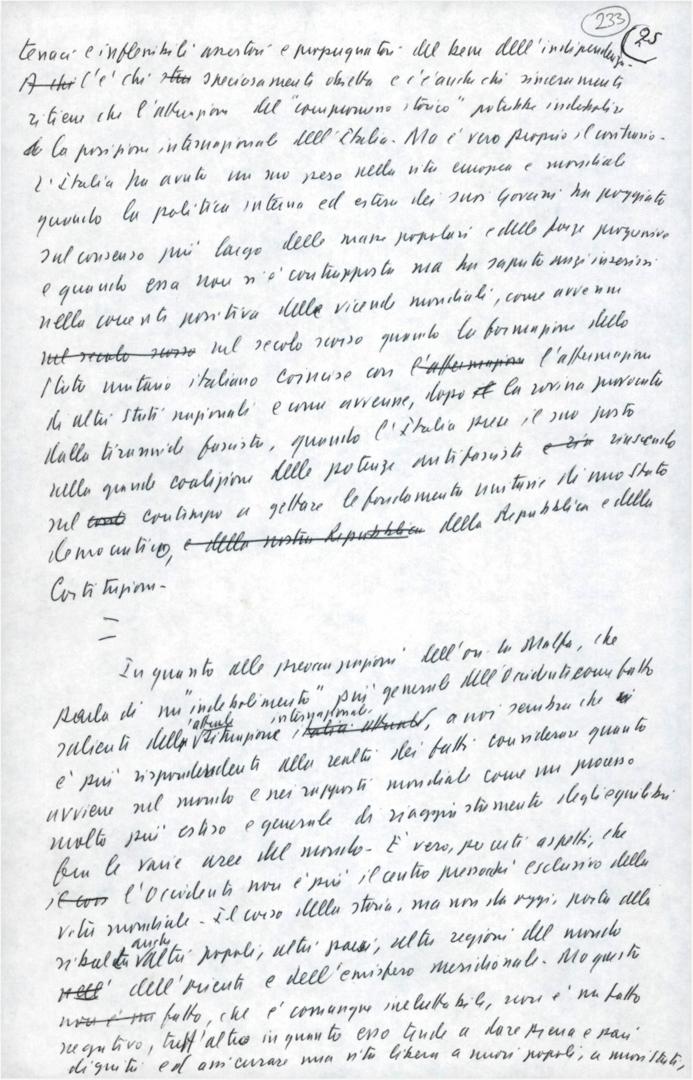 233
25
tenaci e inflessibili assertori e propugnatori del bene dell'indipendenza.
A chi C'è chi speciosamente obietta e c'è anche chi sinceramente
ritiene che l'attuazione del "compromesso storico" potrebbe indebolire
la posizione internazionale dell'Italia. Ma è vero proprio il contrario.
L'Italia ha avuto un suo peso nella vita europea e mondiale
quando la politica interna ed estera dei suoi Governi ha poggiato
sul consenso più largo delle masse popolari e delle forze progressive
e quando essa non si è contrapposta ma ha saputo anzi inserirsi
nella corrente positiva delle vicende mondiali, come avvenne
nel secolo scorso nel secolo scorso quando la formazione dello
Stato unitario italiano coincise con l'affermazione l'affermazione
di altri Stati nazionali e come avvenne, dopo la rovina provocata
dalla tirannide fascista, quando l'Italia prese il suo posto
nella grande coalizione delle potenze antifasciste riuscendo
nel contempo a gettare le fondamenta unitarie di uno Stato
democratico, e della nostra Repubblica della Repubblica e della
Costituzione.
In quanto alle preoccupazioni dell'on. La Malfa, che
parla di un "indebolimento" più generale dell'Occidente come fatto
saliente della attuale situazione internazionale, a noi sembra che
è più rispondente alla realtà dei fatti considerare quanto
avviene nel mondo e nei rapporti mondiali come un processo
molto più esteso e generale di riaggiustamento degli equilibri
fra le varie aree del mondo. È vero, per certi aspetti, che
l'Occidente non è più il centro pressoché esclusivo della
vita mondiale. Il corso della storia, ma non da oggi, porta alla
ribalta anche altri popoli, altri paesi, altre regioni del mondo
dell'oriente e dell'emisfero meridionale. Ma questo
non è un fatto, che è comunque ineluttabile, non è un fatto
negativo, tutt'altro in quanto esso tende a dare piena e pari
dignità ed assicurare una vita libera a nuovi popoli, a nuovi stati,